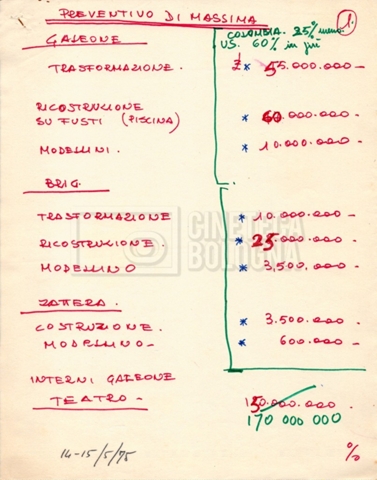 PREVENTIVO DI MASSIMA
1.
GALEONE
COLOMBIA. 25% meno.
US. 60% in più
TRASFORMAZIONE. £ * 45.000.000 —
RICOSTRUZIONE
SU FUSTI (PISCINA) * 60.000.000 —
MODELLINI. * 10.000.000 —
BRIG.
TRASFORMAZIONE * 10.000.000 —
RICOSTRUZIONE. * 25.000.000 —
MODELLINO * 3,500.000 —
CINETECA
BOLOGNA
ZATTERA.
COSTRUZIONE. * 3.500.000 —
MODELLINO — * 600.000 —
INTERNI GALEONE
TEATRO — 150.000.000.
170 000 000
14-15/5/75
%